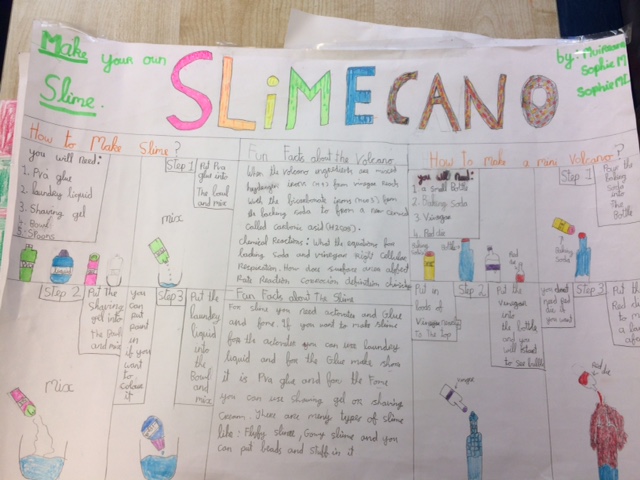 Make your own
Slime.
SLiMECANO
by:
Sophie M
Sophie ML
How to Make Slime?
you will need:
1. Pva glue
2. laundry liquid
3. Shaving gel
4. Bowl
5. Spoons
Step 1
Put Pva
glue into
The bowl
and mix
mix
Step 2
Put The
Shaving
gel into
The Bowl
and mix
Mix
you
can
put
paint
in
if you
want
to
colour
it
Step 3
Put
the
laundry
liquid
into
the
Bowl
and
mix
Fun Facts about the Volcano
When the volcano ingredients are mixed
hydrogen ions from vinegar react
with the bicarbonate ions from
the baking soda to form a new
called carbonic acid (H2CO3).
Chemical Reactions: What the equations for
baking soda and vinegar right Cellular
Respiration. How does surface area affect
Rate Reaction
Fun Facts about The Slime
For slime you need activates and Glue
and fome. If you want to make slime
for the activates you can use laundry
liquid and for the Glue make slime
it is Pva glue and for the Fome
you can use shaving gel or shaving
cream. There are many types of slime
like: Fluffy slime, and you
can put beads and stuff in it
How to make a mini Volcano?
you will need:
1. a small Bottle
2. Baking Soda
3. Vinegar
4. Red die
Baking
Soda
Bottle
Step 1
Pour
Baking
Soda
into
The
Bottle
Baking
Soda
Step 2
Put in
loads of
Vinegar
to The top
Put the
Vinegar
into
the bottle
and you
will start
to see bubbles
Step 3
you dont
need red
die if
you want
Put the
red
to